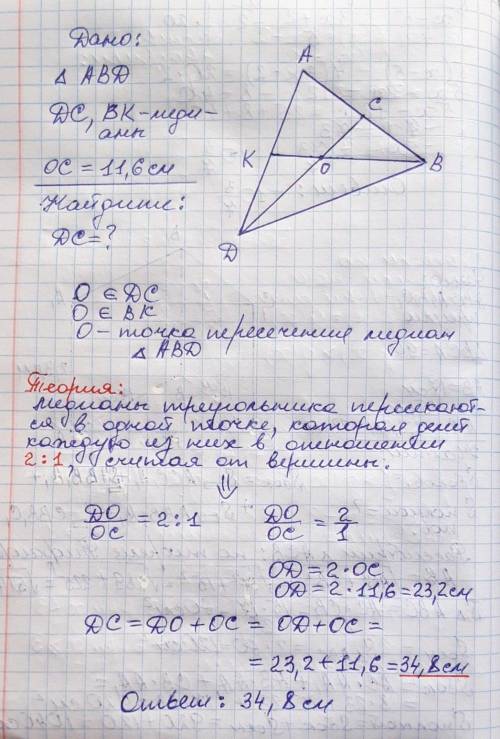 Дано:
△ ABD
DC, BK - меди-
аны
OC = 11,6 см
Найдите:
DC = ?
A
C
K
O
B
D
O ∈ DC
O ∈ BK
O - точка пересечения медиан
△ ABD
Теория:
Медианы треугольника пересекают-
ся в одной точке, которая делит
каждую из них в отношении
2:1, считая от вершины.
⇓
DO/OC = 2:1 DO/OC = 2/1
OD = 2 · OC
OD = 2 · 11,6 = 23,2 см
DC = DO + OC = OD + OC =
= 23,2 + 11,6 = 34,8 см
Ответ: 34,8 см